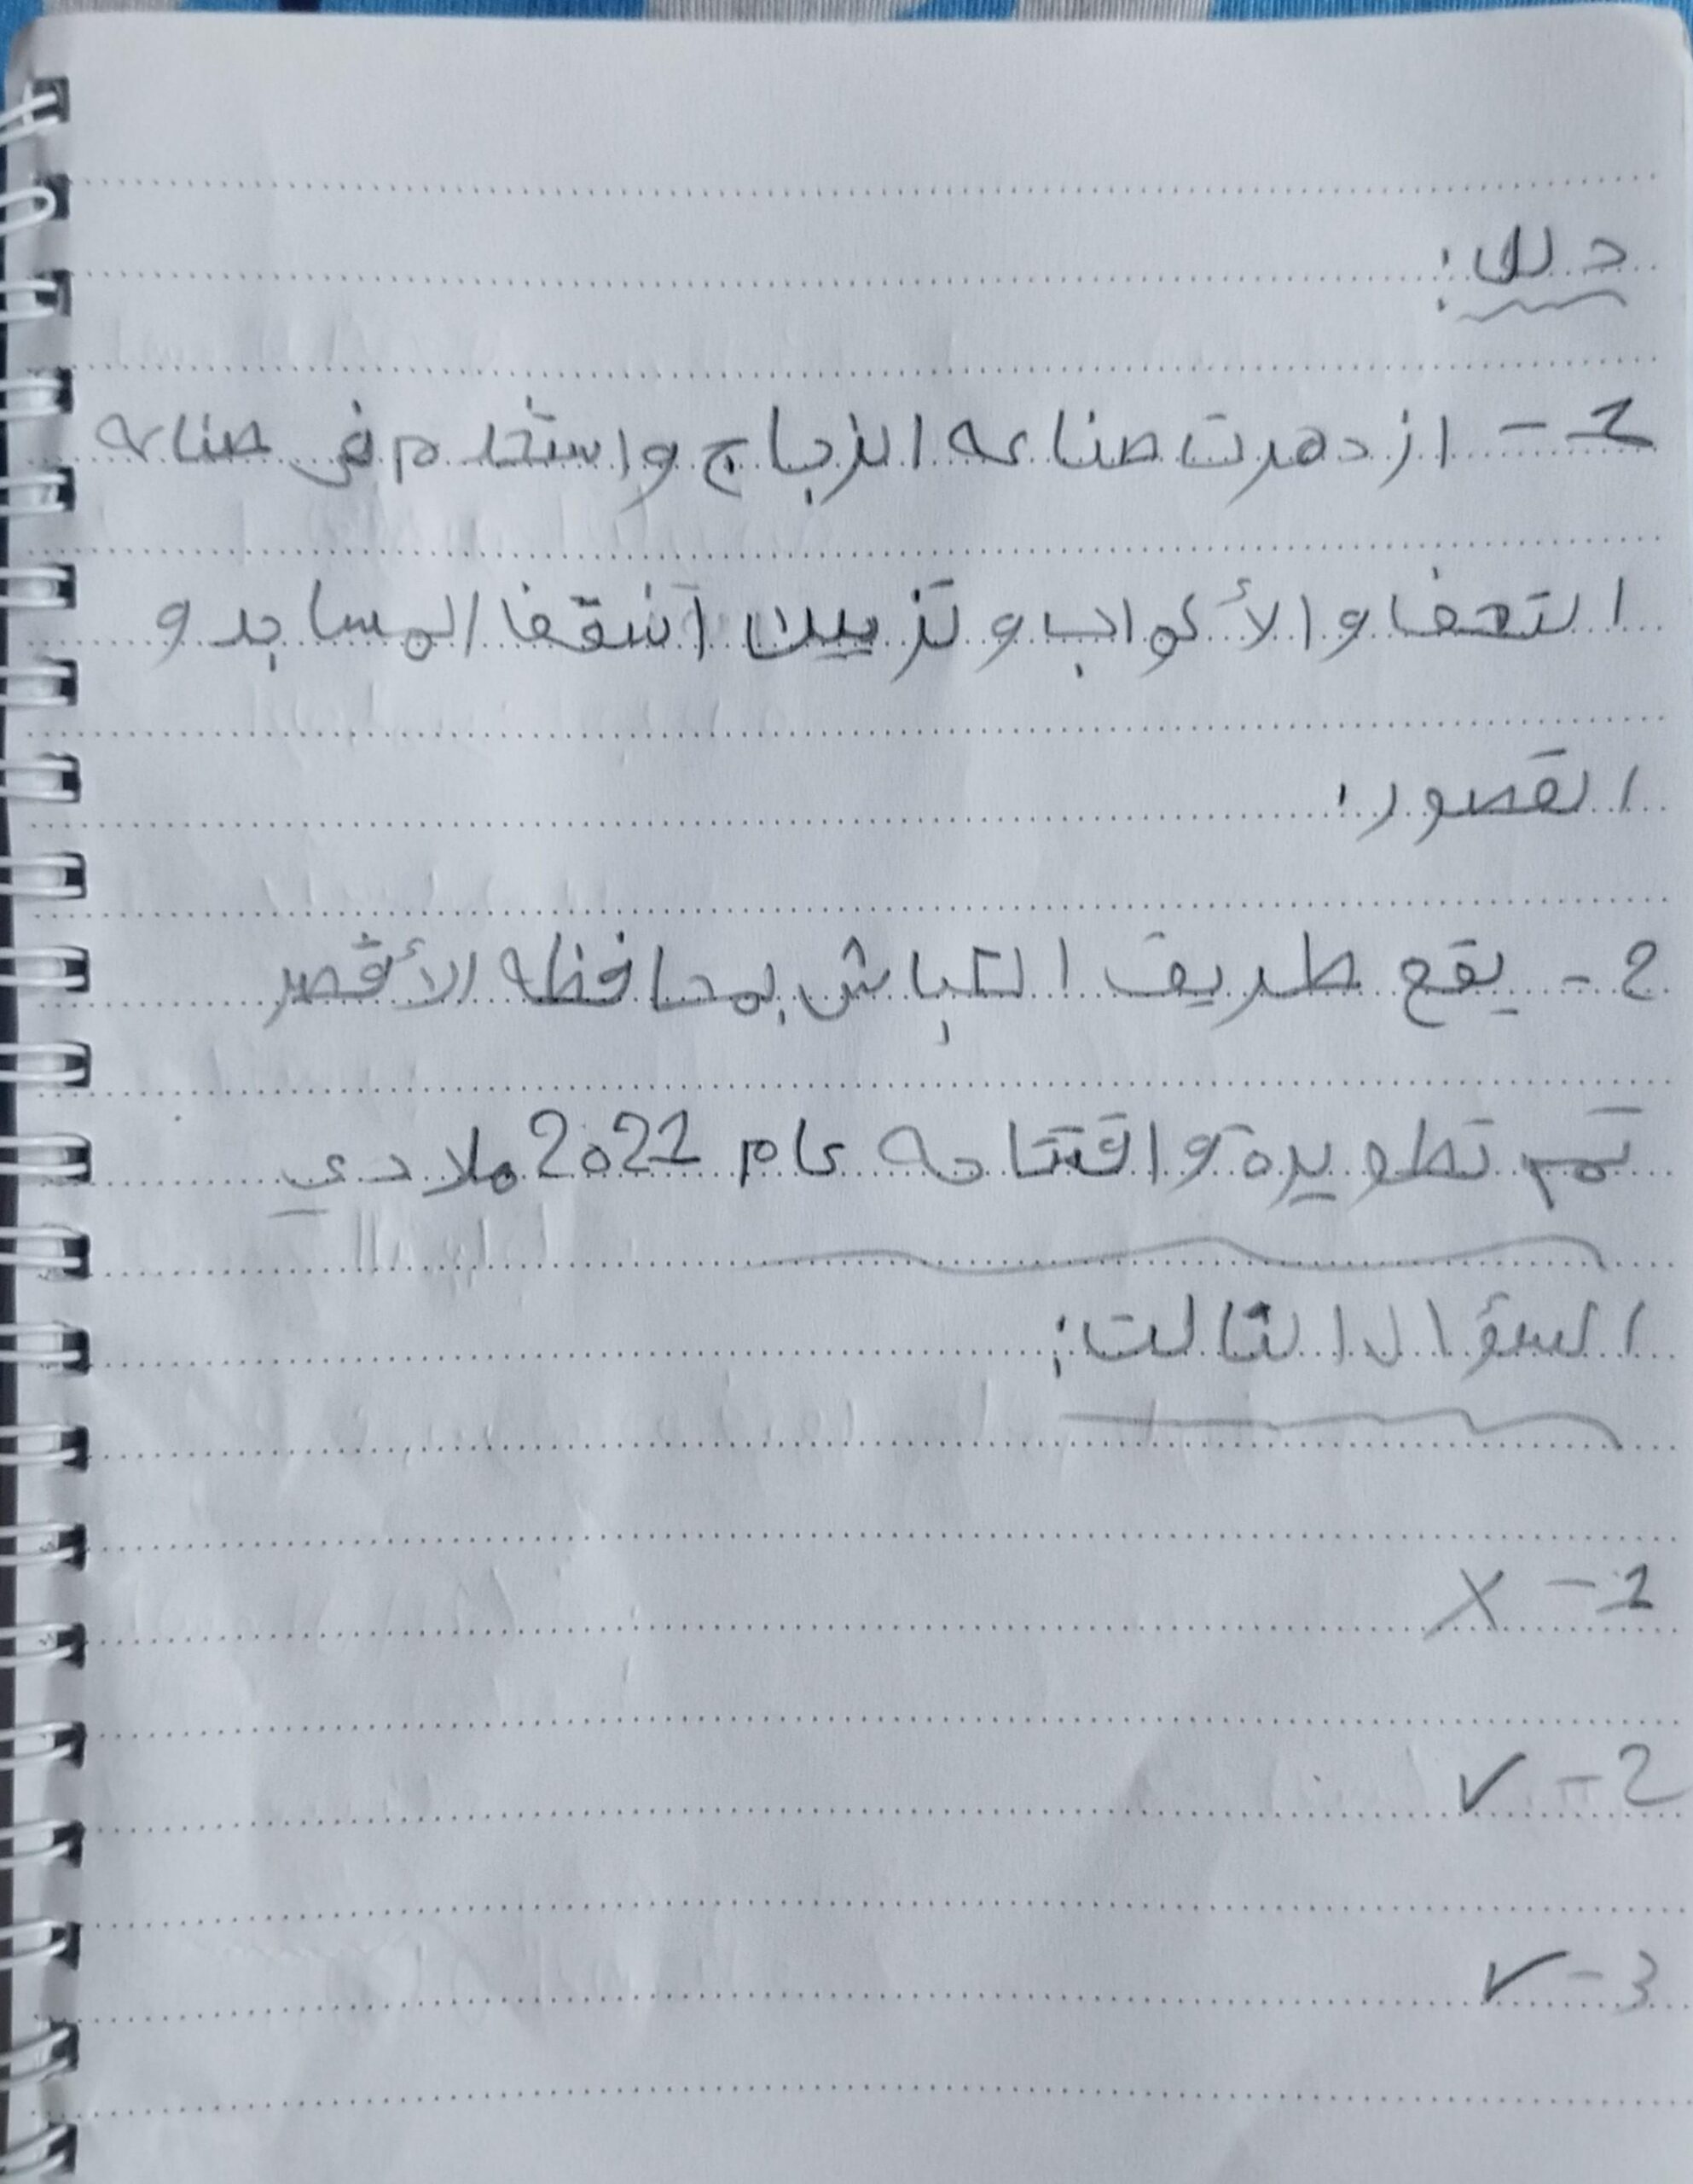 دلل:
1- ازدهرت صناعه الزجاج واستخدم فى صناعه
التحف والأكواب و تزيين اسقف المساجد و
القصور.
2- يقع طريق الكباش بمحافظه الأقصر
تم تطويرة و افتتاحه عام 2021 ملادي
السؤال الثالث:
1- X
2- ✓
3- ✓